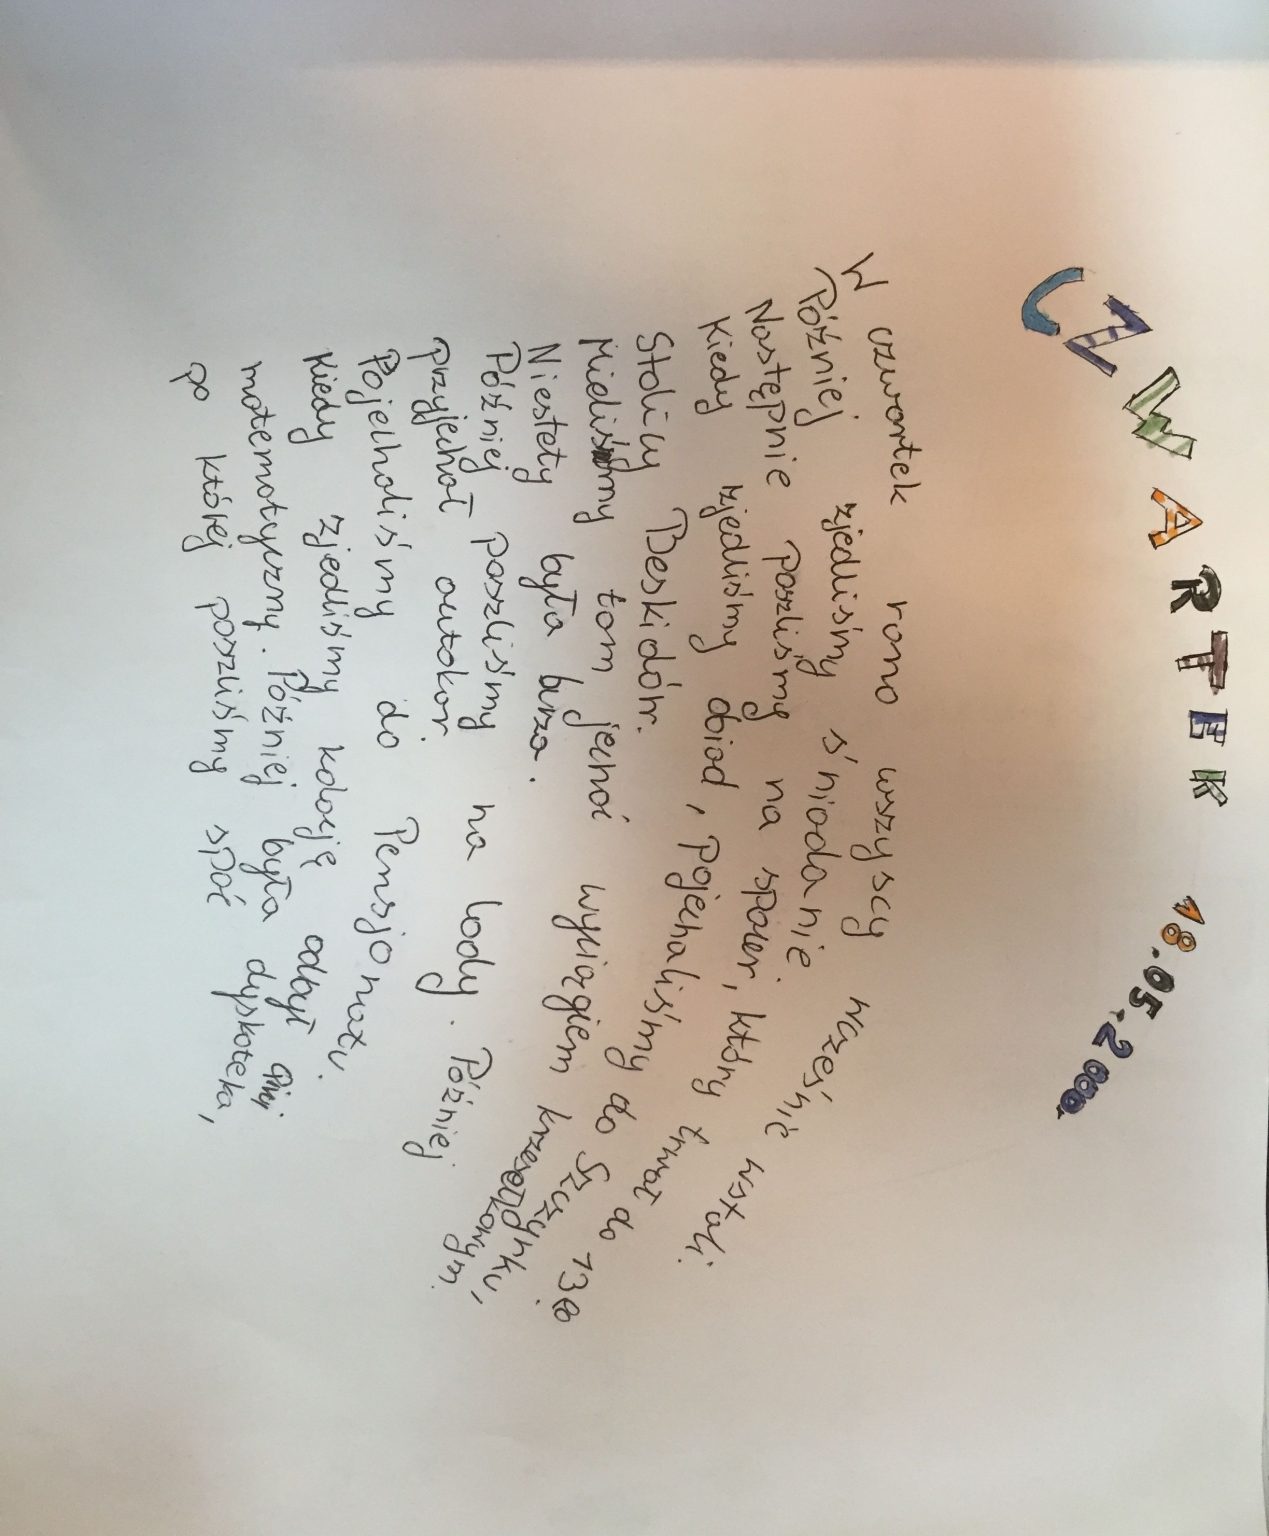 CZWARTEK 18.05.2000
W czwartek rano wszyscy wcześnie wstali.
Później zjedliśmy śniadanie
Następnie poszliśmy na spacer, który trwał do 13.00
Kiedy zjedliśmy obiad, Pojechaliśmy do Szczyrku,
Stolicy Beskidów.
Mieliśmy tam jechać wyciągiem krzesełkowym.
Niestety była burza.
Później poszliśmy na lody. Później
przyjechał autokar.
Pojechaliśmy do Pensjonatu.
Kiedy zjedliśmy kolację odbył
matematyczny. Później była dyskoteka,
po której poszliśmy spać